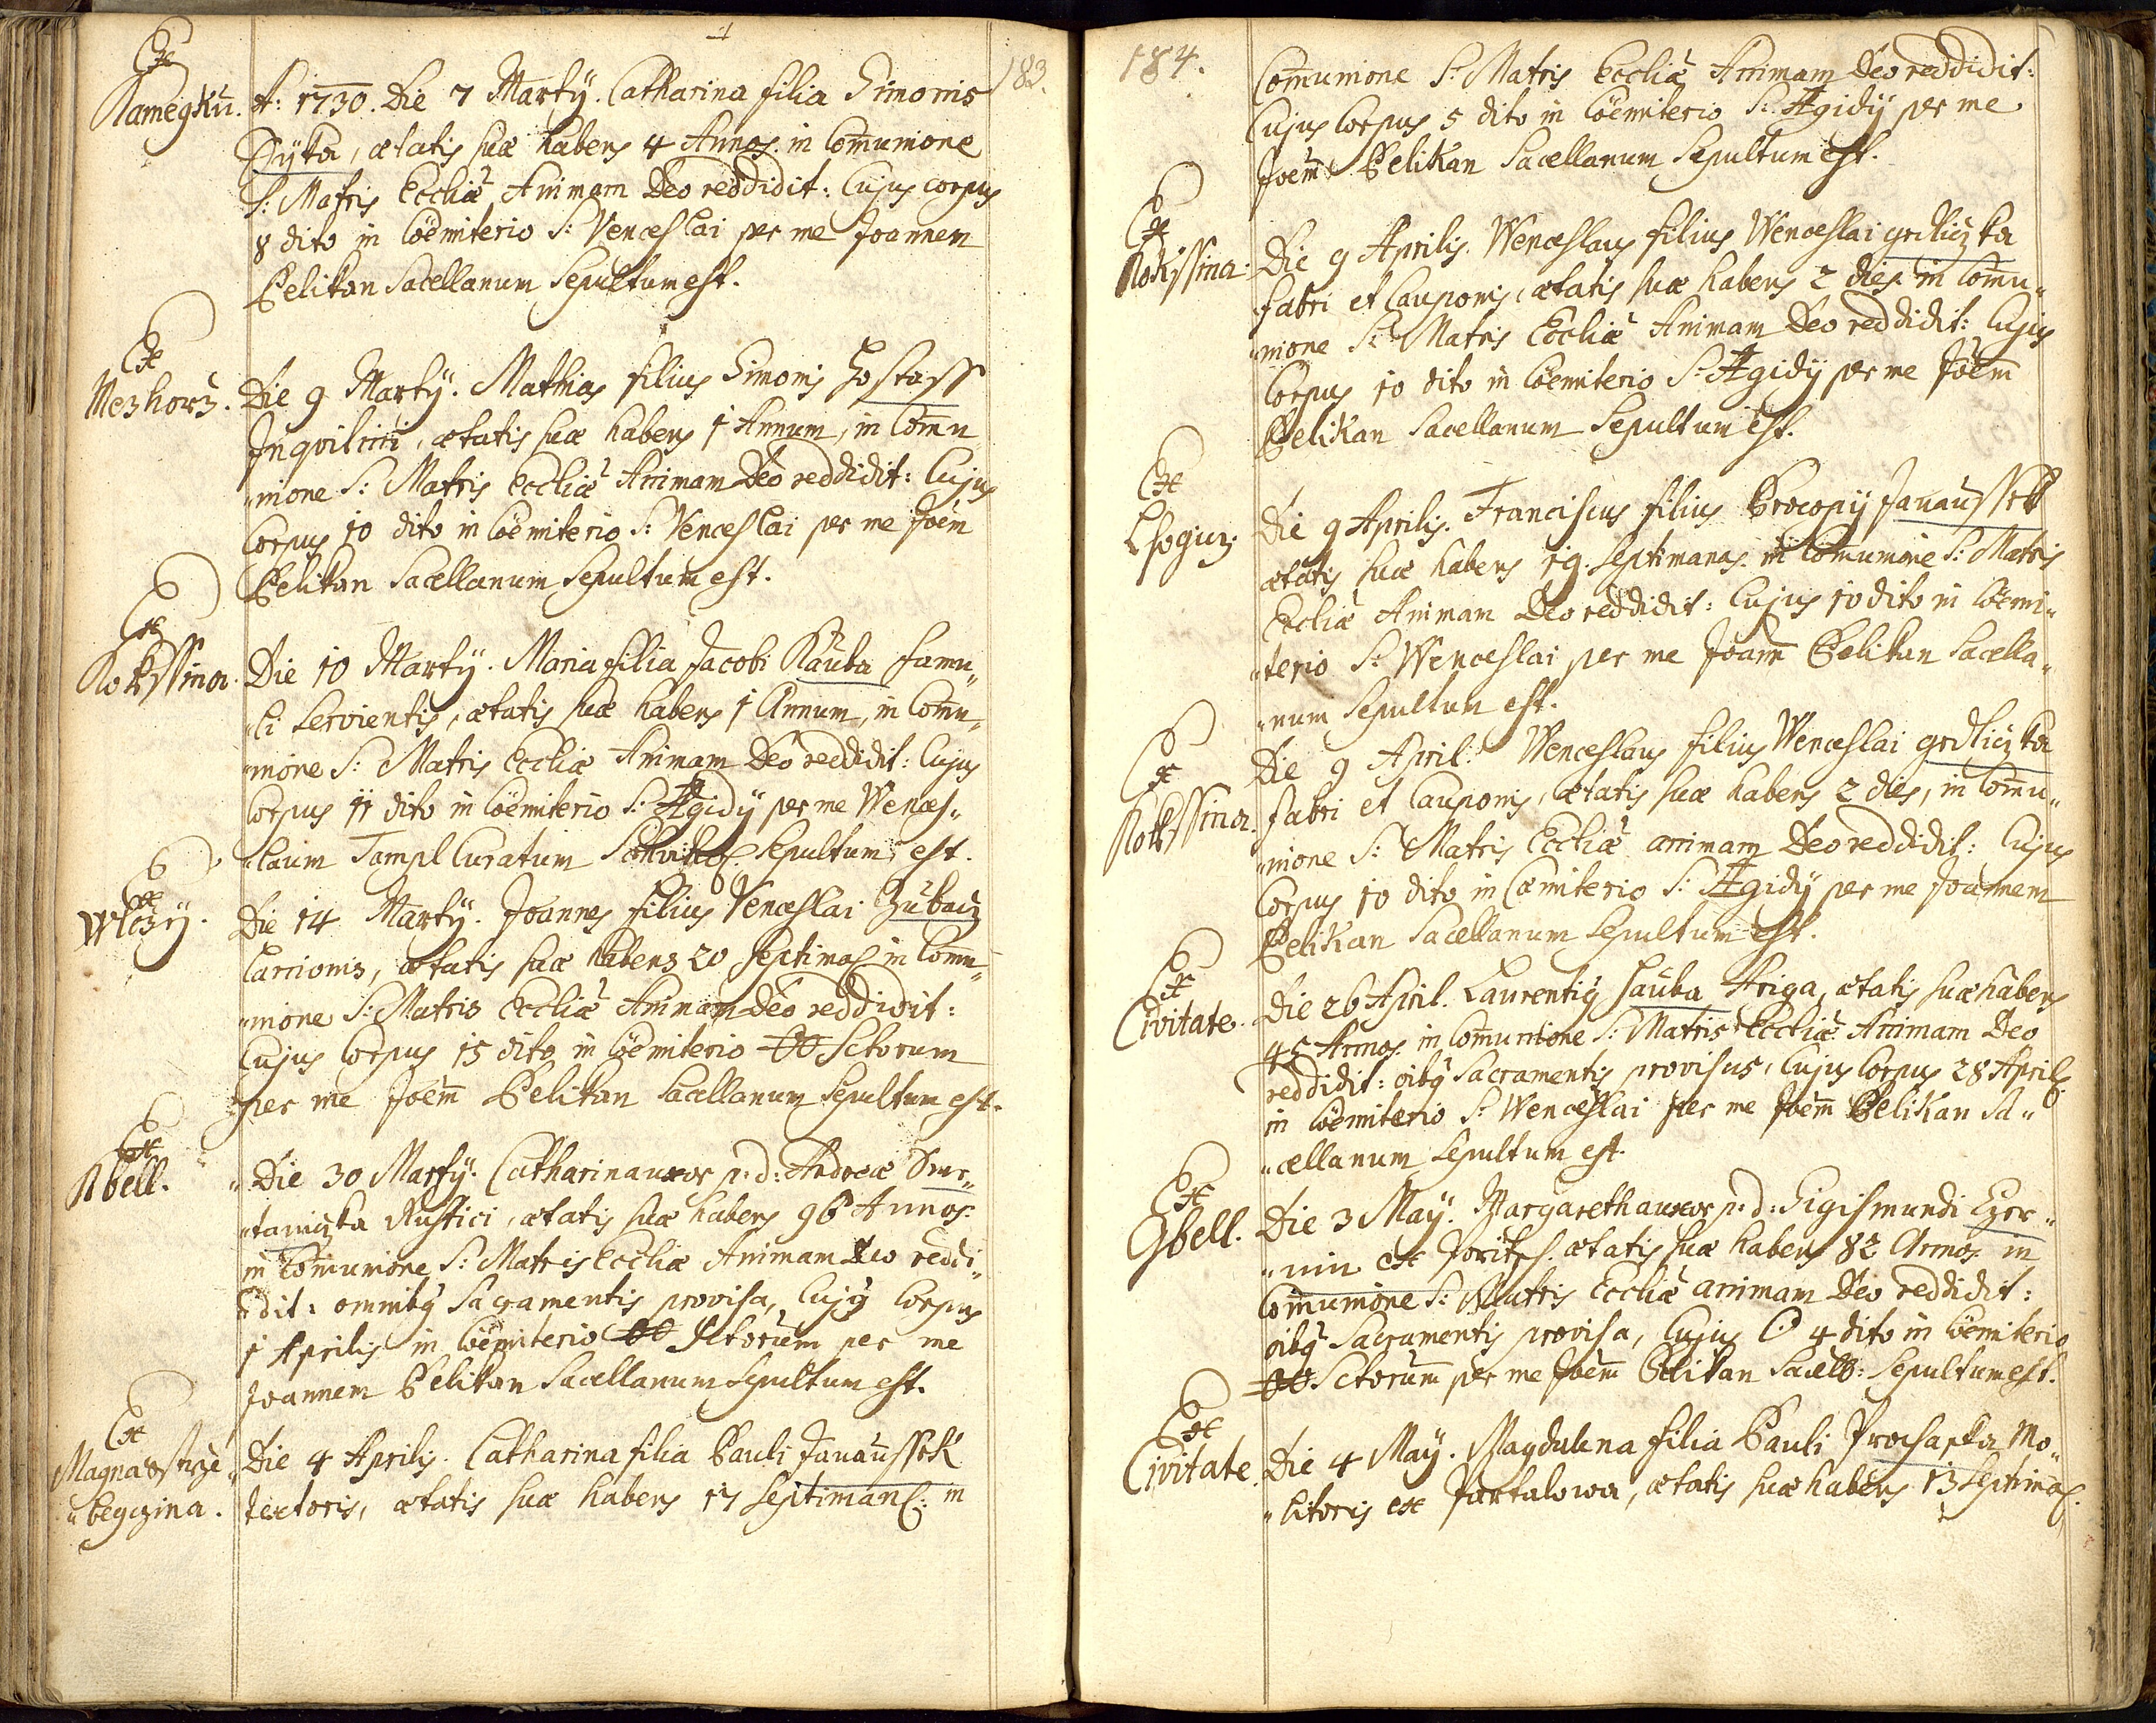 183.
Ex
Kamegku.
A: 1730. Die 7 Martÿ. Catharina filia Simonis
Dÿka, ætatis suæ habens 4 Annos. in Com̄unione
S: Matris Eccliæ Animam Deo reddidit: Cujus corpus
8 dito in Cöemiterio S: Venceslai per me Joannem
Pelikan Sacellanum Sepultum est.
Ex
Mezhorz.
Die 9 Martÿ. Mathias filius Simonis Hostass
Inquilini, ætatis suæ habens 1 Annum, in Com̄u
"nione S: Matris Eccliæ Animam Deo reddidit: Cujus
Corpus 10 dito in Cöemiterio S: Venceslai per me Joēm
Pelikan Sacellanum Sepultum est.
Ex
Kokssina.
Die 10 Martÿ. Maria filia Jacobi Kauba famu„
"li Servientis, ætatis suæ habens 1 Annum, in Com̄u„
"nione S: Matris Eccliæ Animam Deo reddidit: Cujus
Corpus 11 dito in Cöemiterio S: Ægidÿ per me Wences„
"laum Templ Curatum Sepultum est.
Ex
Wlczy.
Die 14 Martÿ. Joannes filius Venceslai Zubacz
Lanionis, ætatis suæ habens 20 septimas in Com̄u„
"nione S: Matris Eccliæ Animam Deo reddidit:
Cujus Corpus 15 dito in Cöemiterio OO Sctorum
per me Joēm Pelikan Sacellanum Sepultum est.
Ex
Kbell.
"Die 30 Martÿ. Catharina uxor p: d: Andreæ Smr„
"taniczka Rustici, ætatis suæ habens 96 Annos.
in Com̄unione S: Matris Eccliæ Animam Deo reddi„
"dit: omnibq Sacramentis provisa, Cujq Corpus
1 Aprilis in Cöemiterio OO Sctorum per me
Joannem Pelikan Sacellanum Sepultum est.
Ex
Magna Strze„
"begczina.
Die 4 Aprilis. Catharina filia Pauli Janaussek
textoris, ætatis suæ habens 17 Septiman: in
184.
Com̄unione S: Matris Eccliæ Animam Deo reddidit:
Cujus Corpus 5 dito in Cöemiterio S: Ægidÿ per me
Joēm Pelikan Sacellanum Sepultum est.
Ex
Kokssina.
Die 9 Aprilis. Wenceslaus filius Wenceslai grdliczka
fabri et Cauponis, ætatis suæ habens 2 dies. in Com̄u„
"nione S: Matris Eccliæ Animam Deo reddidit: Cujus
Corpus 10 dito in Cöemiterio S: Ægidÿ per me Joēm
Pelikan Sacellanum Sepultum est.
Ex
Die 9 Aprilis. Franciscus filius Procopÿ Janaussek
ætatis suæ habens 19. septimanas. in Com̄unione S: Matris
Eccliæ Animam Deo reddidit: Cujus 10 dito in Cöemi„
"terio S: Wenceslai per me Joan̄m Pelikan Sacella„
"num Sepultum est.
Ex
Kokssina.
Die 9 April: Wenceslaus filius Wenceslai grdliczka
fabri et Cauponis, ætatis suæ habens 2 dies, in Com̄u„
"nione S: Matris Eccliæ animam Deo reddidit: Cujus
Corpus 10 dito in Cæmiterio S: Ægidÿ per me Joannem
Pelikan Sacellanum Sepultum est.
Ex
Civitate.
Die 26 April. Laurentiq Hauba Auriga, ætatis suæ habens
45 Annos. in Com̄unione S: Matris Eccliæ Animam Deo
reddidit: oībq Sacramentis provisus, Cujus Corpus 28 April:
in Cöemiterio S: Wenceslai per me Joēm Pelikan Sa„
"cellanum Sepultum est.
Ex
Gbell.
Die 3 Maÿ. Margaretha uxor p: d: Sigismundi Czer„
"nin ex ætatis suæ habens 82 Annos. in
Com̄unione S: Matris Eccliæ animam Deo reddidit:
oībq Sacramentis provisa, Cujus C: 4 dito in Cöemiterio
OO Sctorum per me Joēm Pelikan Sacell: Sepultum est.
Ex
Civitate.
Die 4 Maÿ. Magdalena filia Pauli Prochaska Mo„
"litoris ex Fortalowa, ætatis suæ habens 13 Septimas.